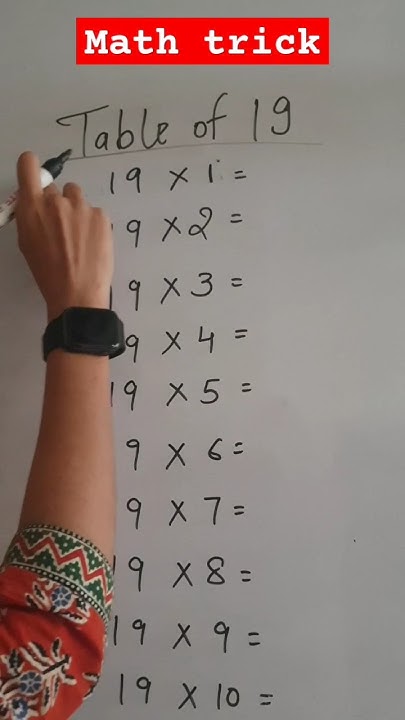 Math trick
Table of 19
19 × 1 =
19 × 2 =
19 × 3 =
19 × 4 =
19 × 5 =
19 × 6 =
9 × 7 =
19 × 8 =
19 × 9 =
19 × 10 =